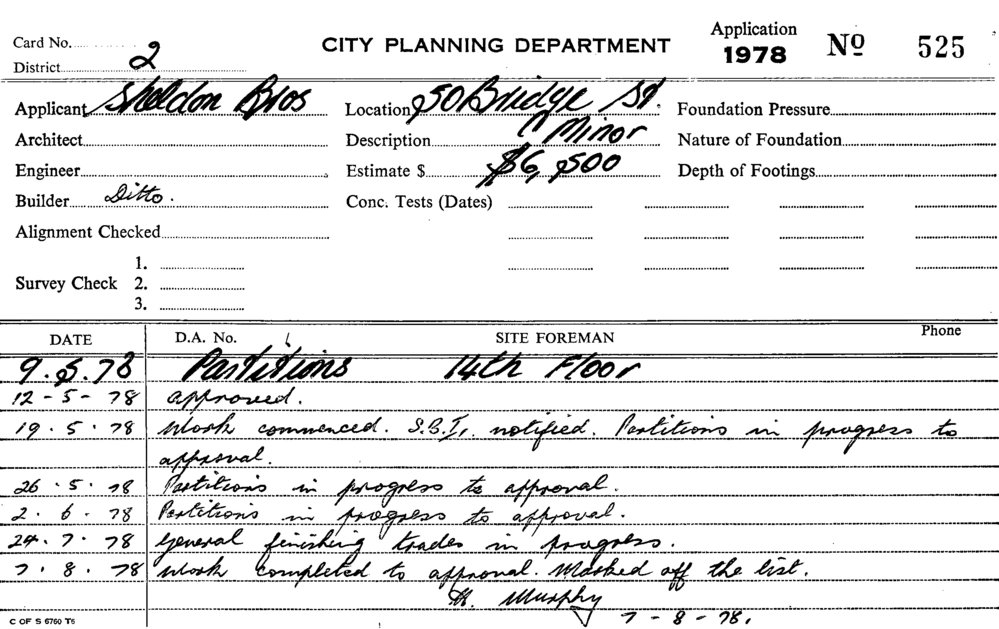 Card No.
CITY PLANNING DEPARTMENT
Application 1978 Nº 525
District 2
Applicant Sheldon Bros Location 50 Bridge St. Foundation Pressure
Architect Description Minor Nature of Foundation
Engineer Estimate $ $6,500 Depth of Footings
Builder Ditto. Conc. Tests (Dates)
Alignment Checked
1.
Survey Check 2.
3.
DATE D.A. No. SITE FOREMAN Phone
9.5.78 Partitions 14th Floor
12-5-78 approved.
19.5.78 Work commenced. S.B.I. notified. Partitions in progress to
approval.
26.5.78 Partitions in progress to approval.
2.6.78 Partitions in progress to approval.
24.7.78 General finishing trades in progress.
7.8.78 Work completed to approval. Marked off the list.
Murphy
7-8-78.
C OF S 6760 T6